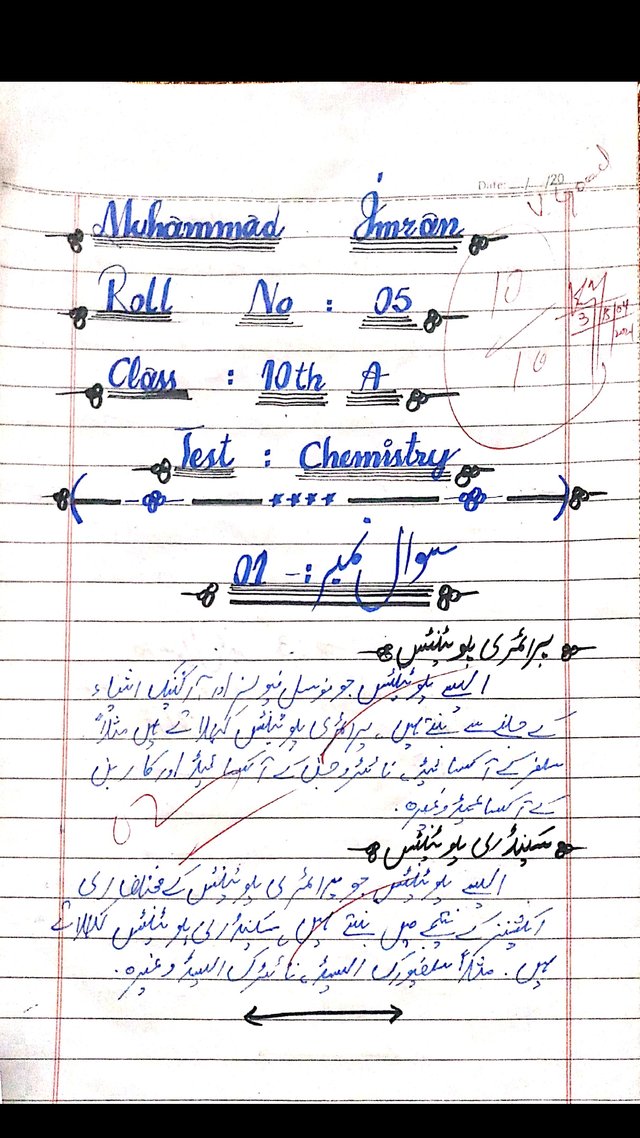 Date: __/__/20
V. Good
Muhammad Imran
10
Roll No : 05
10
3 8 04
Class : 10th A
Test : Chemistry
سوال نمبر :- 01
پرائمری پلوٹینٹس
ایسے پلوٹینٹس جو فوسل فیولز اور آرگینک اشیاء
کے جلنے سے بنتے ہیں۔ پرائمری پلوٹینٹس کہلاتے ہیں مثلاً
سلفر کے آکسائیڈ، نائٹروجن کے آکسائیڈ اور کاربن
کے آکسائیڈ وغیرہ۔
سکینڈری پلوٹینٹس
ایسے پلوٹینٹس جو پرائمری پلوٹینٹس کے مختلف ری
ایکشنز کے نتیجے میں بنتے ہیں سکینڈری پلوٹینٹس کہلاتے
ہیں۔ مثلاً سلفیورک ایسیڈ، نائٹرک ایسیڈ وغیرہ۔